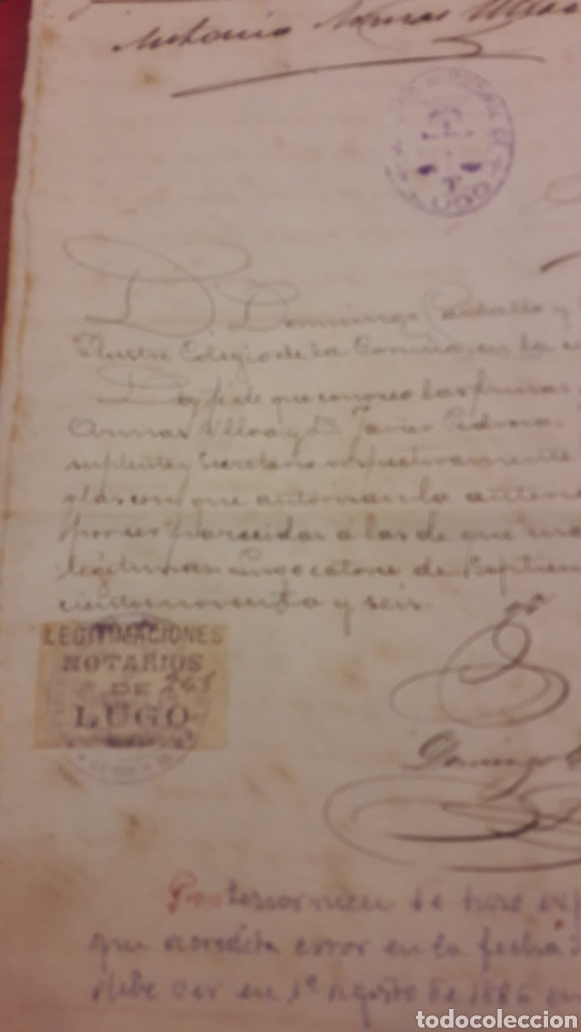 Antonio Armas Ulloa
LUGO
D. Domingo Carballo y
Ilustre Colegio de la Coruña, en la
Doy fé de que conozco las firmas
Armas Ulloa y D. Javier Pedrosa
suplente y Secretario respectivamente
glas con que autorizan la anterior
por ser parecidas á las de que usan
legítimas. Lugo catorce de Septiem
cientos noventa y seis.
LEGITIMACIONES
NOTARIOS
DE
LUGO
Domingo
Posteriormen se hizo exp
que acredita error en la fecha
debe ser en 1º Agosto de
todocoleccion